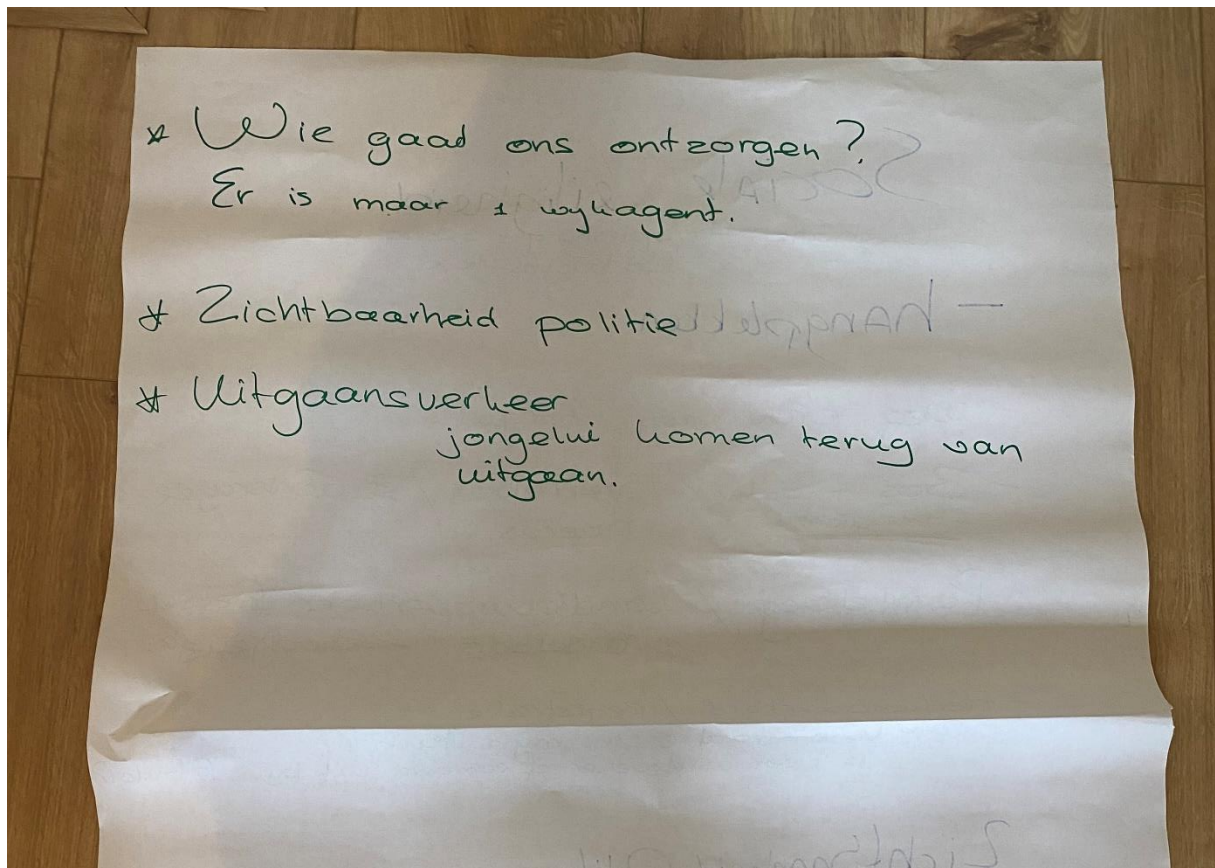 * Wie gaad ons ontzorgen?
Er is maar 1 wykagent.
* Zichtbaarheid politie
* Uitgaansverkeer
jongelui komen terug van
uitgaan.